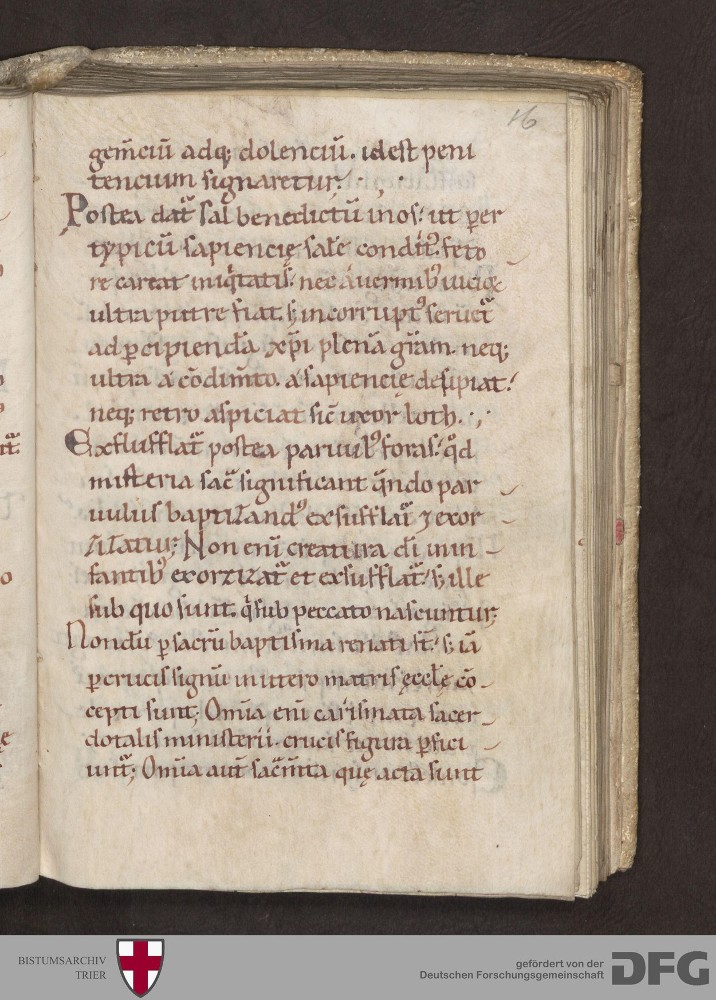 16
gem̄ciū adq; dolenciū. idest peni
tencium signaretur;
Postea dat᷑ sal benedictū in os; ut ꝑer
typicū sapiencię sale condit᷒ feto
re careat iniq̇tatis; nec a uermib᷒ uicioꝝ
ultra putre fiat. s; incorrupt᷒ seruet᷑
ad ꝑcipiend̄a xp̄i plenā gr̄am. neq;
ultra a cōdim̄to. a sapiencię desipiat;
neq; retro aspiciat sic̄ uxor loth.
Exsufflat᷑ postea paruul᷒ foras; q̄d
misteria sac̄ significant q̄ndo par
uulus baptizand᷒ exsufflat᷑ ⁊ exor
zizatur; Non eni creatura dī in in
fantib᷒ exorzizat᷑ et exsufflat᷑; s; ille
sub quo sunt. q̇ sub peccato nascuntur;
Nondū ꝑ sacrū baptisma renati st̄; s; iā
ꝑ crucis signū in utero matris ęcclę cō
cepti sunt; Om̄ia eni carismata sacer
dotalis ministerii. crucis figura ꝑfici
unt᷑; Om̄ia aut̄ sac̄m̄ta quę acta sunt
BISTUMSARCHIV
TRIER
gefördert von der
Deutschen Forschungsgemeinschaft
DFG